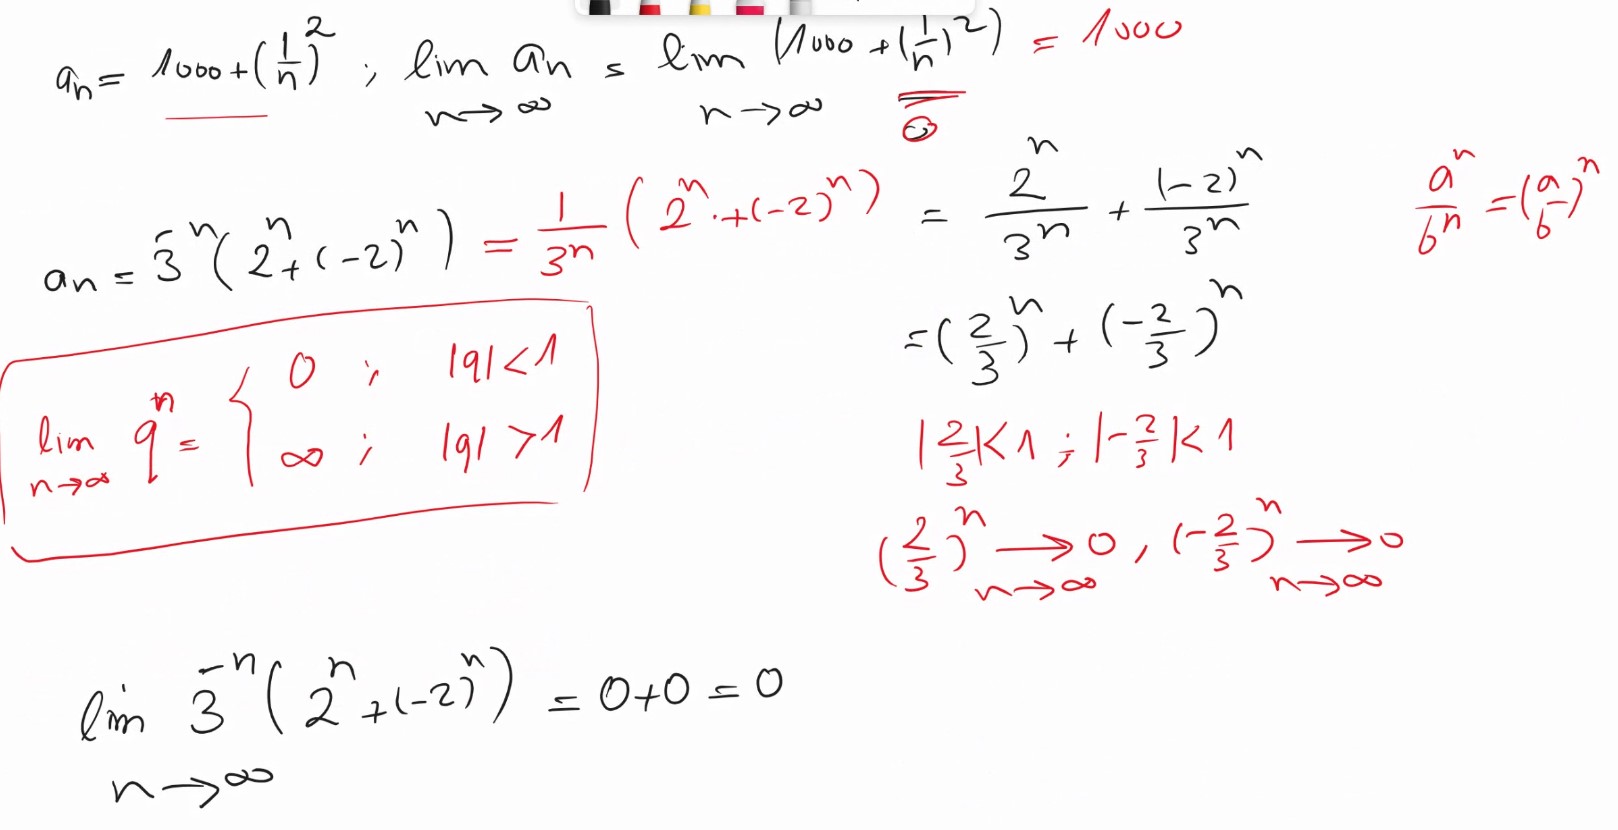 aₙ = 1000 + (1/n)² ; lim_{n→∞} aₙ = lim_{n→∞} (1000 + (1/n)²) = 1000
0
aₙ = 3⁻ⁿ(2ⁿ + (-2)ⁿ) = 1/3ⁿ (2ⁿ + (-2)ⁿ) = 2ⁿ/3ⁿ + (-2)ⁿ/3ⁿ
aⁿ/bⁿ = (a/b)ⁿ
= (2/3)ⁿ + (-2/3)ⁿ
lim_{n→∞} qⁿ = { 0 ; |q| < 1
∞ ; |q| > 1
|2/3| < 1 ; |-2/3| < 1
(2/3)ⁿ →_{n→∞} 0 , (-2/3)ⁿ →_{n→∞} 0
lim_{n→∞} 3⁻ⁿ(2ⁿ + (-2)ⁿ) = 0+0 = 0